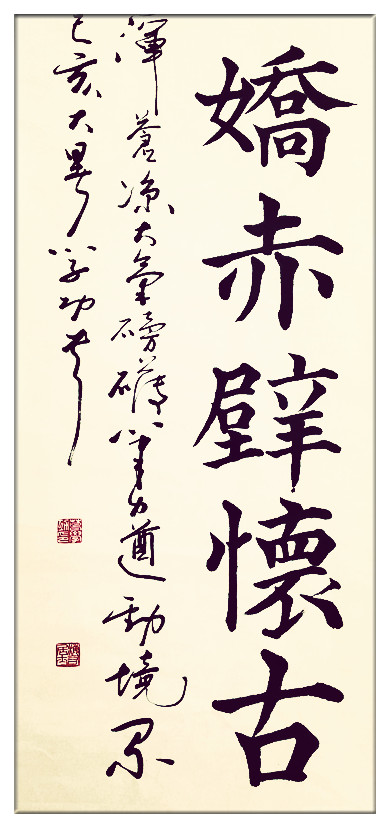 嬌赤壁懷古
渾蒼涼大氣磅礴筆力遒勁境界
己亥大暑学功书